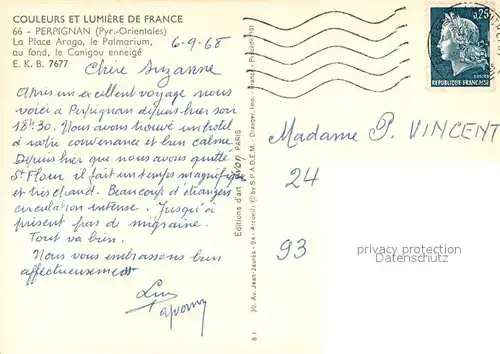 COULEURS ET LUMIÈRE DE FRANCE
66 - PERPIGNAN (Pyr.-Orientales)
La Place Arago, le Palmarium,
au fond, le Canigou enneigé
E. K. B. 7677
6-9-68
Chère Suzanne
Après un excellent voyage nous
voici à Perpignan depuis hier soir
18h30. Nous avons trouvé un hôtel
à notre convenance et bien calme.
Depuis hier que nous avons quitté
St Flour il fait un temps magnifique
et très chaud. Beaucoup d'étrangers
circulation intense. Jusqu'à
présent pas de migraine.
Tout va bien.
Nous vous embrassons bien
affectueusement
Yvonne
Editions d'art yvon PARIS
30, Av. Jean-Jaurès - 94 - Arcueil
0,25
REPUBLIQUE FRANÇAISE
Madame P. VINCENT
24
93
privacy protection
Datenschutz